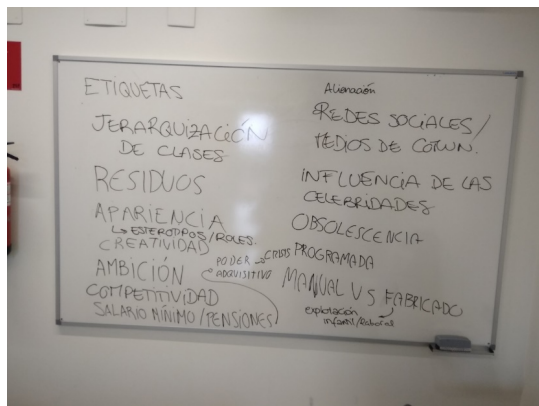 ETIQUETAS
JERARQUIZACIÓN
DE CLASES
RESIDUOS
APARIENCIA
↳ ESTEROTIPOS/ROLES.
CREATIVIDAD
AMBICIÓN
COMPETITIVIDAD
SALARIO MÍNIMO/PENSIONES
PODER → CRISIS
ADQUISITIVO
Alienación
REDES SOCIALES/
MEDIOS DE COMUN.
INFLUENCIA DE LAS
CELEBRIDADES
OBSOLESCENCIA
PROGRAMADA
MANUAL VS FABRICADO
explotación
infantil/laboral